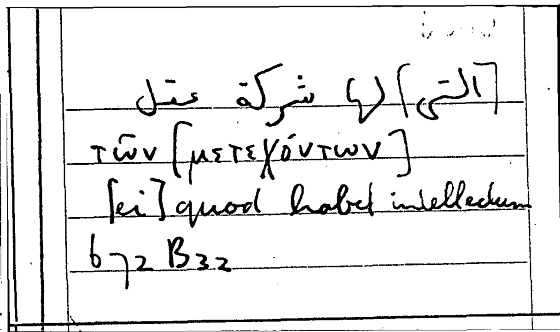 [التي] لها شركة عقل
τῶν [μετεχόντων]
[ei] quod habet intellectum
672 B32